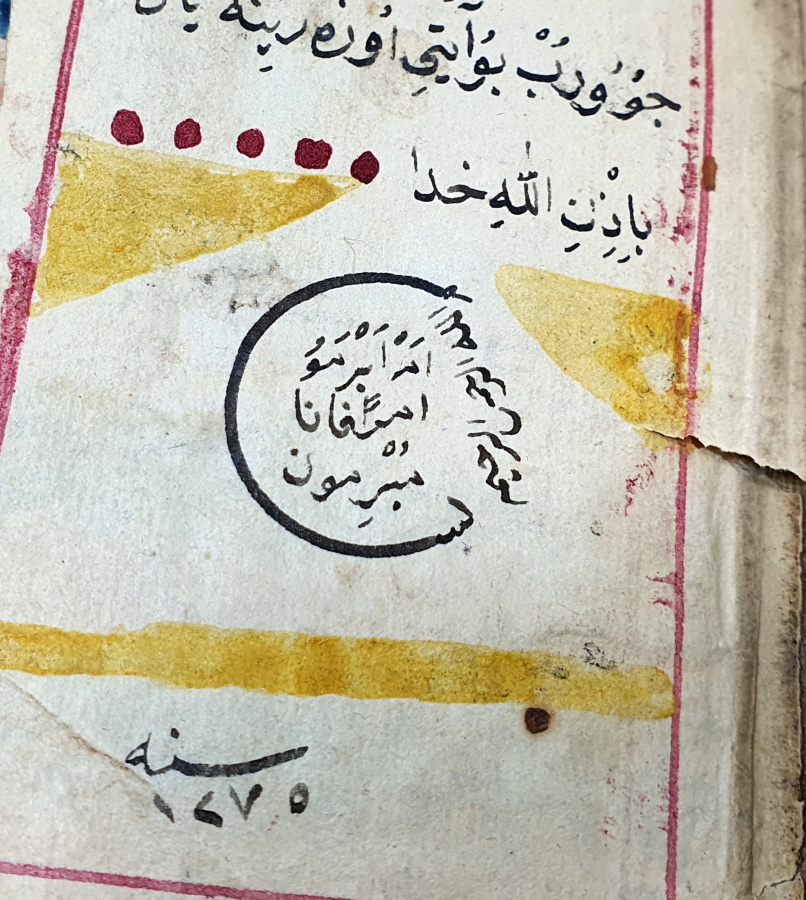 جوُوُربْ بوُ آيتيِ اوُزه رينه
باِذْنِ اللّٰهِ خدا
بسم الله الرحمن الرحيم
اَمْ اَبْرَمُو
امراً فانا
مُبْرِمون
سنه
١٢٧٥